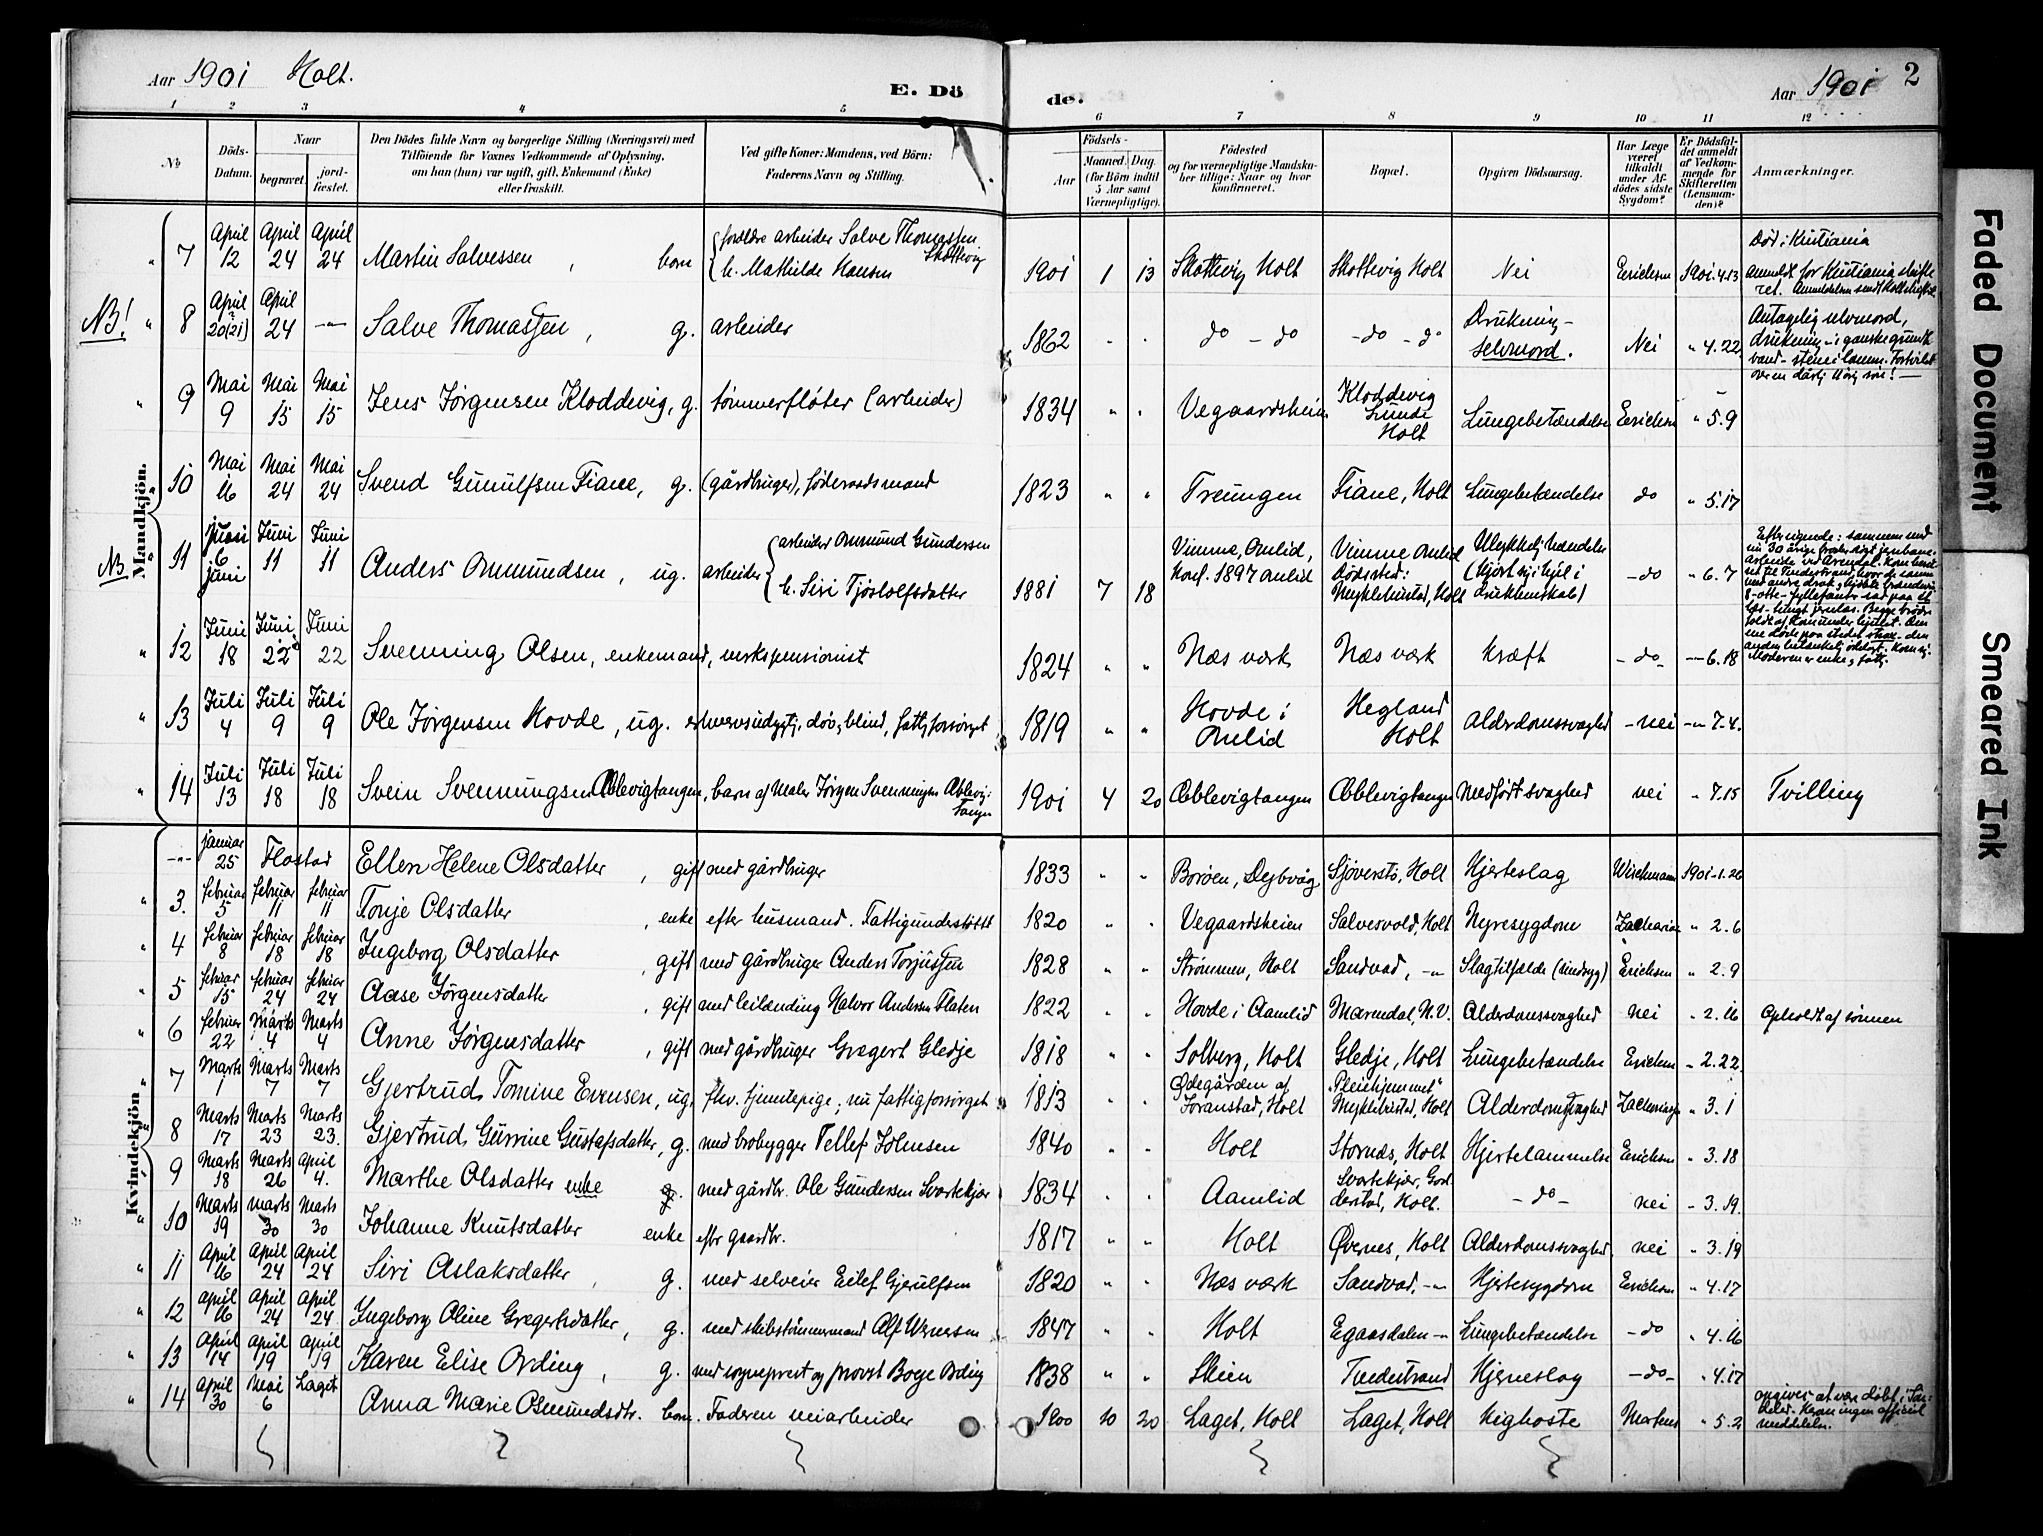 Aar 1901 Holt. E. Dö de. Aar 1901 2
1 2 3 4 5 6 7 8 9 10 11 12
No
Döds-Datum.
Naar
begravet.
jord-fæstet.
Den Dödes fulde Navn og borgerlige Stilling (Næringsvei) med
Tilföiende for Voxnes Vedkommende af Oplysning,
om han (hun) var ugift, gift, Enkemand (Enke)
eller fraskilt.
Ved gifte Koner: Mandens, ved Börn:
Faderens Navn og Stilling.
Födsels-
Aar
Maaned. Dag.
(for Börn indtil
5 Aar samt
Værnepligtige).
Födested
og for værnepligtige Mandska-
ber tillige: Naar og hvor
konfirmeret.
Bopæl.
Opgiven Dödsaarsag.
Har Læge
været
tilkaldt
under Af-
dödes sidste
Sygdom?
Er Dödsfal-
det anmeldt
af Vedkom-
mende for
Skifteretten
(Lensman-
den)?
Anmærkninger.
Mandkjön.
" 7 April 12 April 24 April 24 Martin Salvessen, barn forældre arbeider Salve Thomassen Skottevig h. Mathilde Hansen 1901 1 13 Skottevig Holt Skottevig Holt Nei Erichsen 1901.4.13 Död i Kristiania anmeldt for Kristiania skifteret.
NB! " 8 April 20(21) April 24 -"- Salve Thomassen, g. arbeider 1862 " " do - do - do - do Drukning - selvmord. Nei " 4.22 Antagelig selvmord, drukning - i ganske grundt vand
" 9 Mai 9 Mai 15 Mai 15 Jens Jørgensen Kloddevig, g. tømmerfløter (arbeider) 1834 " " Vegaardsheien Kloddevig Lunde Holt Lungebetændelse Erichsen " 5.9
" 10 Mai 16 Mai 24 Mai 24 Svend Gunulfsen Fiane, g. (gårdbruger), føderaadsmand 1823 " " Treungen Fiane, Holt Lungebetændelse do " 5.17
NB 11 6 juni Juni 11 Juni 11 Anders Ommundsen, ug. arbeider arbeider Ommund Gundersen h. Siri Tjøstolfsdatter 1881 7 18 Vimme, Omlid, Konf. 1897 Omlid Vimme Omlid Dødssted: Myklebustad, Holt Ulykkelig hændelse (kjørt sig ihjel i drukkenskab) - do " 6.7
" 12 Juni 18 Juni 22 Juni 22 Svenning Olsen, enkemand, verkspensionist 1824 " " Næs værk Næs værk Kræft - do - -"- 6.18 Moderen er enke, fattig.
" 13 Juli 4 Juli 9 Juli 9 Ole Jørgensen Hovde, ug. erhvervsudygtig, døv, blind, fattigforsørget 1819 " " Hovde i Omlid Hegland Holt Alderdomssvaghed - nei -"- 7.4.
" 14 Juli 13 Juli 18 Juli 18 Svein Svenningsen Æblevigtangen, barn af Maler Jørgen Svenningsen Æblevig: Tangen 1901 4 20 Æblevigtangen Æblevigtangen Medfødt svaghed nei " 7.15 Tvilling
Kvindekjön
-"- januar 25 Flostad Ellen Helene Olsdatter, gift med gårdbruger 1833 " " Borøen, Dybvåg Sjøverstø, Holt Hjerteslag Wiichmann 1901-1.26
" 3. februar 5 februar 11 februar 11 Tonje Olsdatter, enke efter husmand. Fattigunderstøttet 1820 " " Vegaardsheien Salvesvold, Holt Nyresygdom Zacharias " 2.6
" 4 februar 8 februar 18 februar 18 Ingeborg Olsdatter, gift med gårdbruger Anders Torjussen 1828 " " Strømmen, Holt Sandvad, -"- Slagtilfælde (sindssyg) Erichsen " 2.9
" 5 februar 15 februar 24 februar 24 Aase Jørgensdatter, gift med leilænding Halvor Andersen Flaten 1822 " " Hovde i Aamlid Mærendal, N.V. Alderdomssvaghed nei " 2.16 Opholdt af sønnen
" 6 februar 22 Marts 4 Marts 4 Anne Jørgensdatter, gift med gårdbruger Gregert Gledje 1818 " " Solberg, Holt Gledje, Holt Lungebetændelse Erichsen " 2.22.
" 7 Marts 1 Marts 7 Marts 7 Gjertrud Tomine Evensen, ug. fhv. tjenestepige; nu fattigforsørget 1813 " " Ødegården af Goranstad, Holt "Pleiehjemmet" Myklebustad, Holt Alderdomssvaghed " 3.1
" 8 Marts 17 Marts 23 Marts 23. Gjertrud Gurine Gustafsdatter, g. med brobygger Tellef Johnsen 1840 " " Holt Stornes, Holt Hjertelammelse Erichsen " 3.18
" 9 Marts 18 Marts 26 April 4. Marthe Olsdatter enke g. med gårdbr. Ole Gundersen Svartekjær 1834 " " Aamlid Svartekjær, Goderstad, Holt. - do - nei " 3.19.
" 10 Marts 19 Marts 30 Marts 30 Johanne Knutsdatter enke eftr gaardbr. 1817 " " Holt Øvernes, Holt Alderdomssvaghed nei " 3.19
" 11 April 16 April 24 April 24 Siri Aslaksdatter, g. med selveier Eilef Gjeulfsen 1820 " " Næs værk Sandvad, -"- Hjertesygdom Erichsen " 4.17
" 12 April 16 April 24 April 24 Ingeborg Oline Gregertsdatter, g. med skibstømmermand Alf Wernersen 1847 " " Holt Egaasdalen -"- Lungebetændelse - do " 4.16
" 13 April 14 April 19 April 19 Karen Elise Ording, g. med sogneprest og provst Boye Ording 1838 " " Skien Tvedestrand Hjerneslag - do - " 4.17
" 14 April 30 Mai 6 Laget Anna Marie Osmundsdtr. barn. Faderen veiarbeider 1900 10 20 Laget, Holt Laget, Holt Kighoste Martens " 5.2 opgives at være døbt i Søndeled. Kom ingen officiel meddelelse.
Faded Document
Smeared Ink